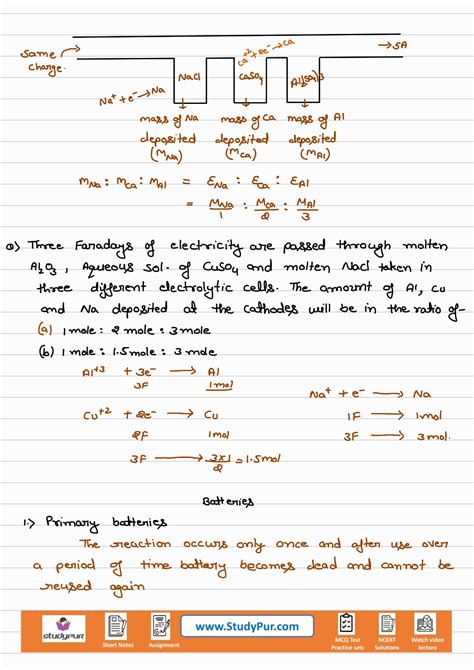 Same
charge.
→ 5A
Ca⁺² + 2e⁻ → Ca
NaCl
CaSO₄
Al₂(SO₄)₃
Na⁺ + e⁻ → Na
mass of Na mass of Ca mass of Al
deposited deposited deposited
(M_Na) (M_Ca) (M_Al)
M_Na : M_Ca : M_Al = E_Na : E_Ca : E_Al
= M_Na/1 : M_Ca/2 : M_Al/3
Q) Three Faradays of electricity are passed through molten
Al₂O₃, Aqueous sol. of CuSO₄ and molten NaCl taken in
three different electrolytic cells. The amount of Al, Cu
and Na deposited at the cathodes will be in the ratio of-
(a) 1 mole : 2 mole : 3 mole
(b) 1 mole : 1.5 mole : 3 mole
Al⁺³ + 3e⁻ → Al
3F 1 mol
Na⁺ + e⁻ → Na
Cu⁺² + 2e⁻ → Cu
1F → 1 mol
2F 1 mol
3F → 3 mol.
3F → 3×1/2 = 1.5 mol
Batteries
1.) Primary batteries
The reaction occurs only once and after use over
a period of time battery becomes dead and cannot be
reused again
studypur
Short Notes
Assignment
www.StudyPur.com
MCQ Test
Practice sets
NCERT
Solutions
Watch video
lecture